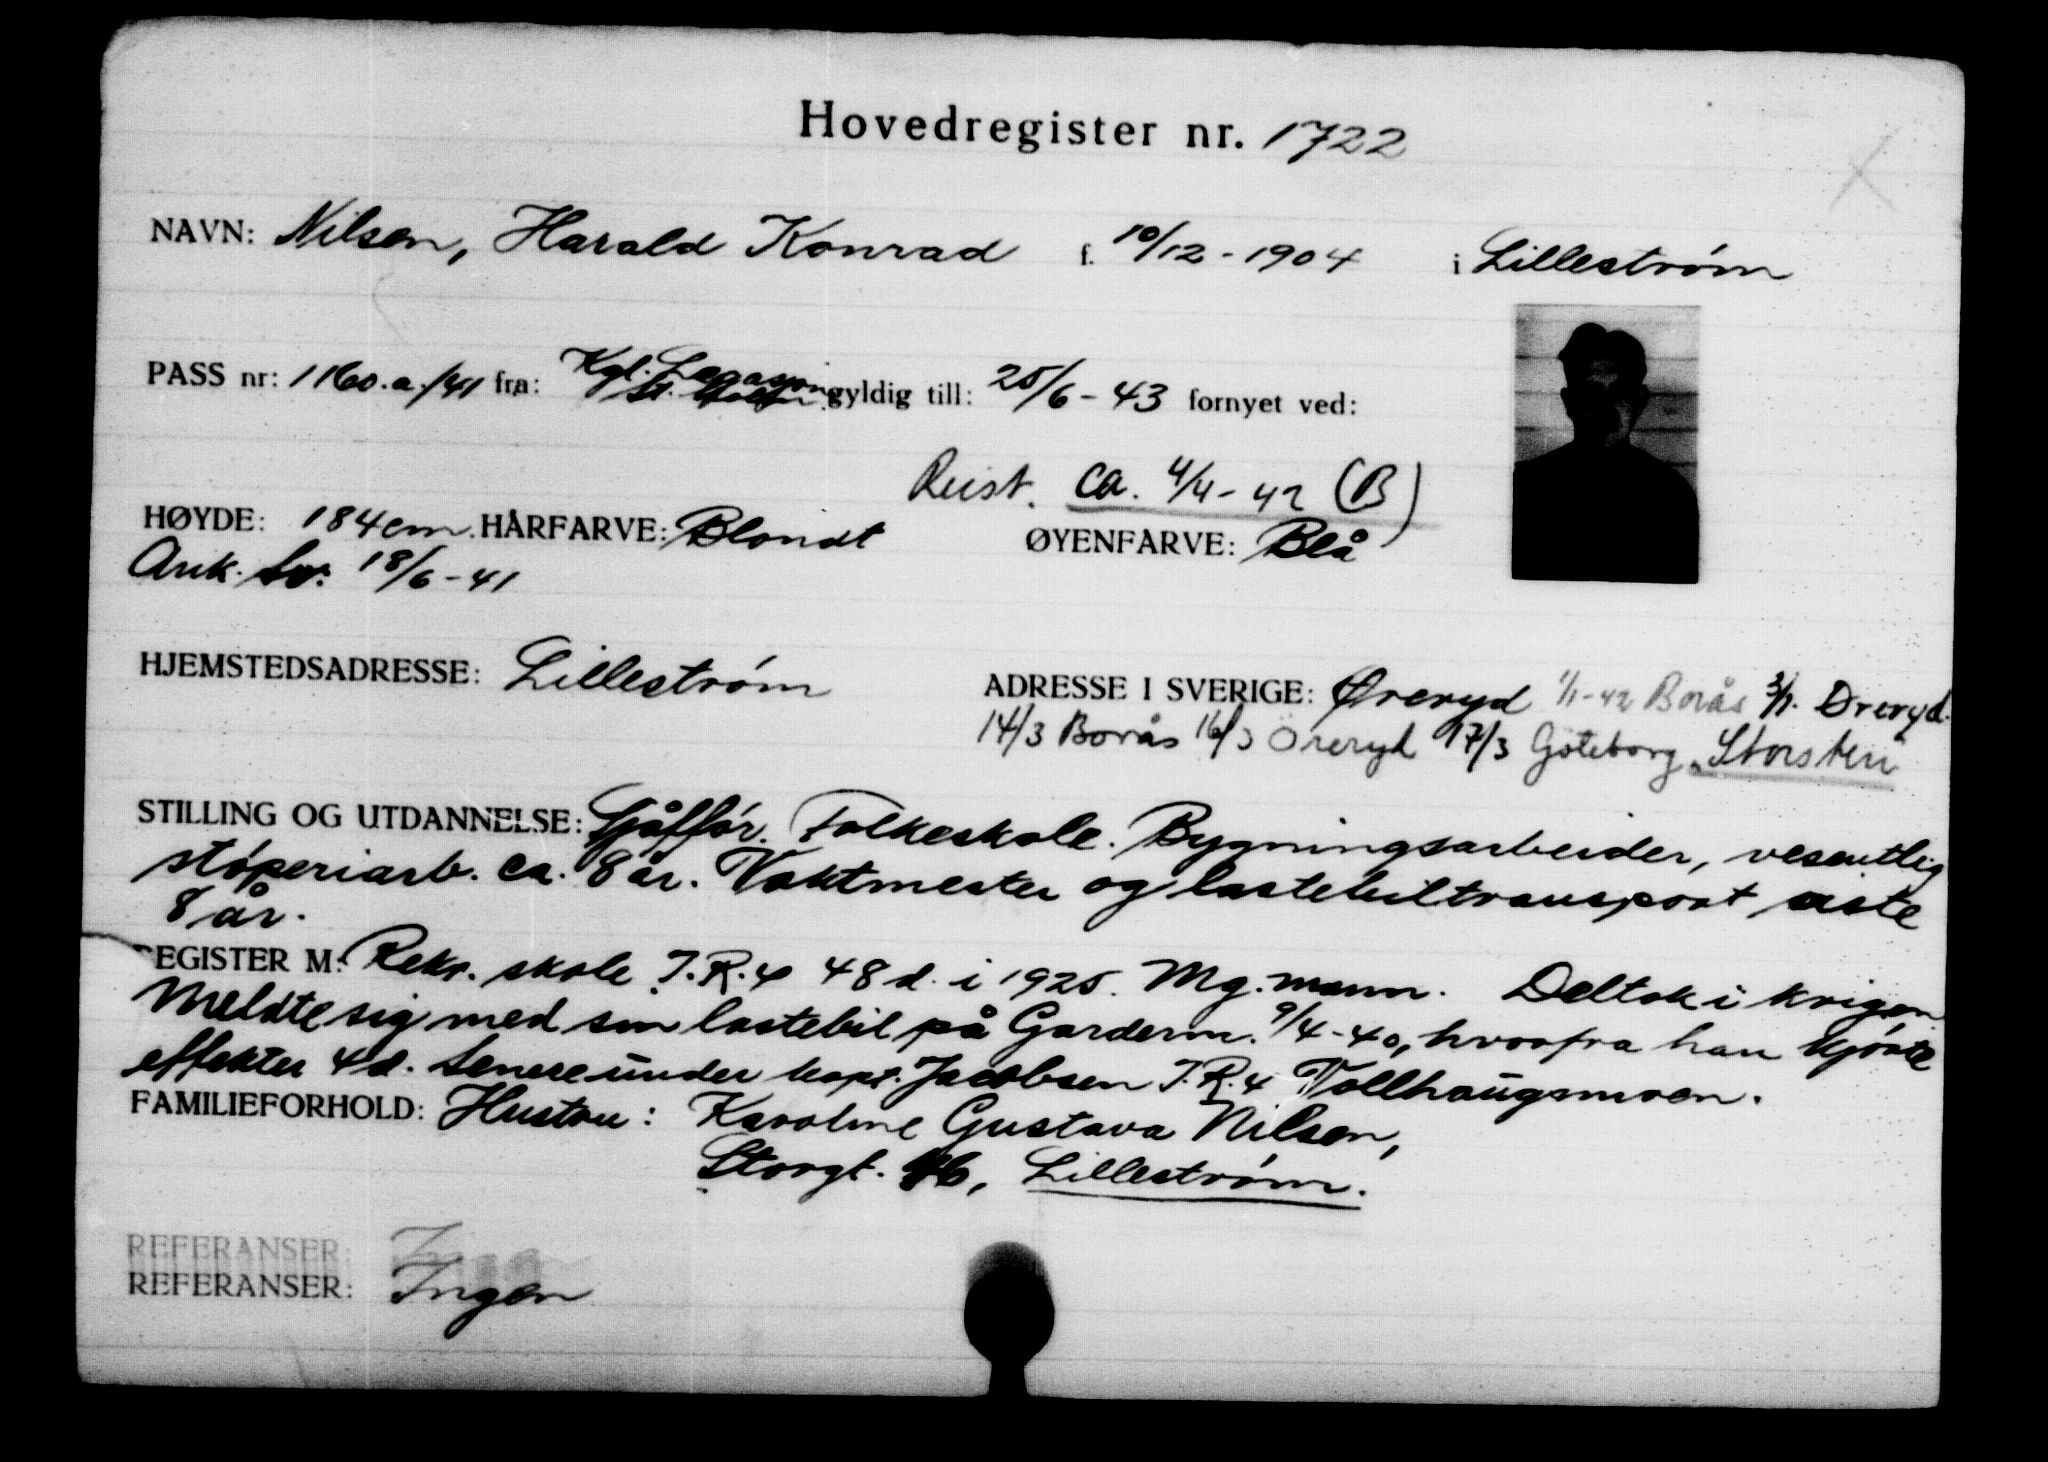 Hovedregister nr. 1722
NAVN: Nilsen, Harald Konrad f. 10/12-1904 i Lillestrøm
PASS nr: 1160.a./41 fra: Kgl. Legasjon gyldig till: 25/6-43 fornyet ved:
Reist. ca. 4/4-42 (B)
HØYDE: 184cm. HÅRFARVE: Blondt ØYENFARVE: Blå
Ank. Sv. 18/6-41
HJEMSTEDSADRESSE: Lillestrøm ADRESSE I SVERIGE: Øreryd 1/1-42 Borås 3/1. Øreryd.
14/3 Borås 16/3 Öreryd 17/3 Göteborg "Storsten"
STILLING OG UTDANNELSE: Sjåffør. Folkeskole. Bygningsarbeider, vesentlig
støperiarb. ca. 8 år. Vaktmester og lastebiltransport siste
8 år.
REGISTER M: Rekr. skole I.R.4 48 d. i 1925. Mg. mann. Deltok i krigen
Meldte sig med sin lastebil på Garderm. 9/4-40, hvorfra han kjørte
effekter 4 d. Senere under kapt. Jacobsen I.R.4 Vollhaugmoen.
FAMILIEFORHOLD: Hustru: Karoline Gustava Nilsen,
Storgt. Lillestrøm.
REFERANSER:
REFERANSER: Ingen